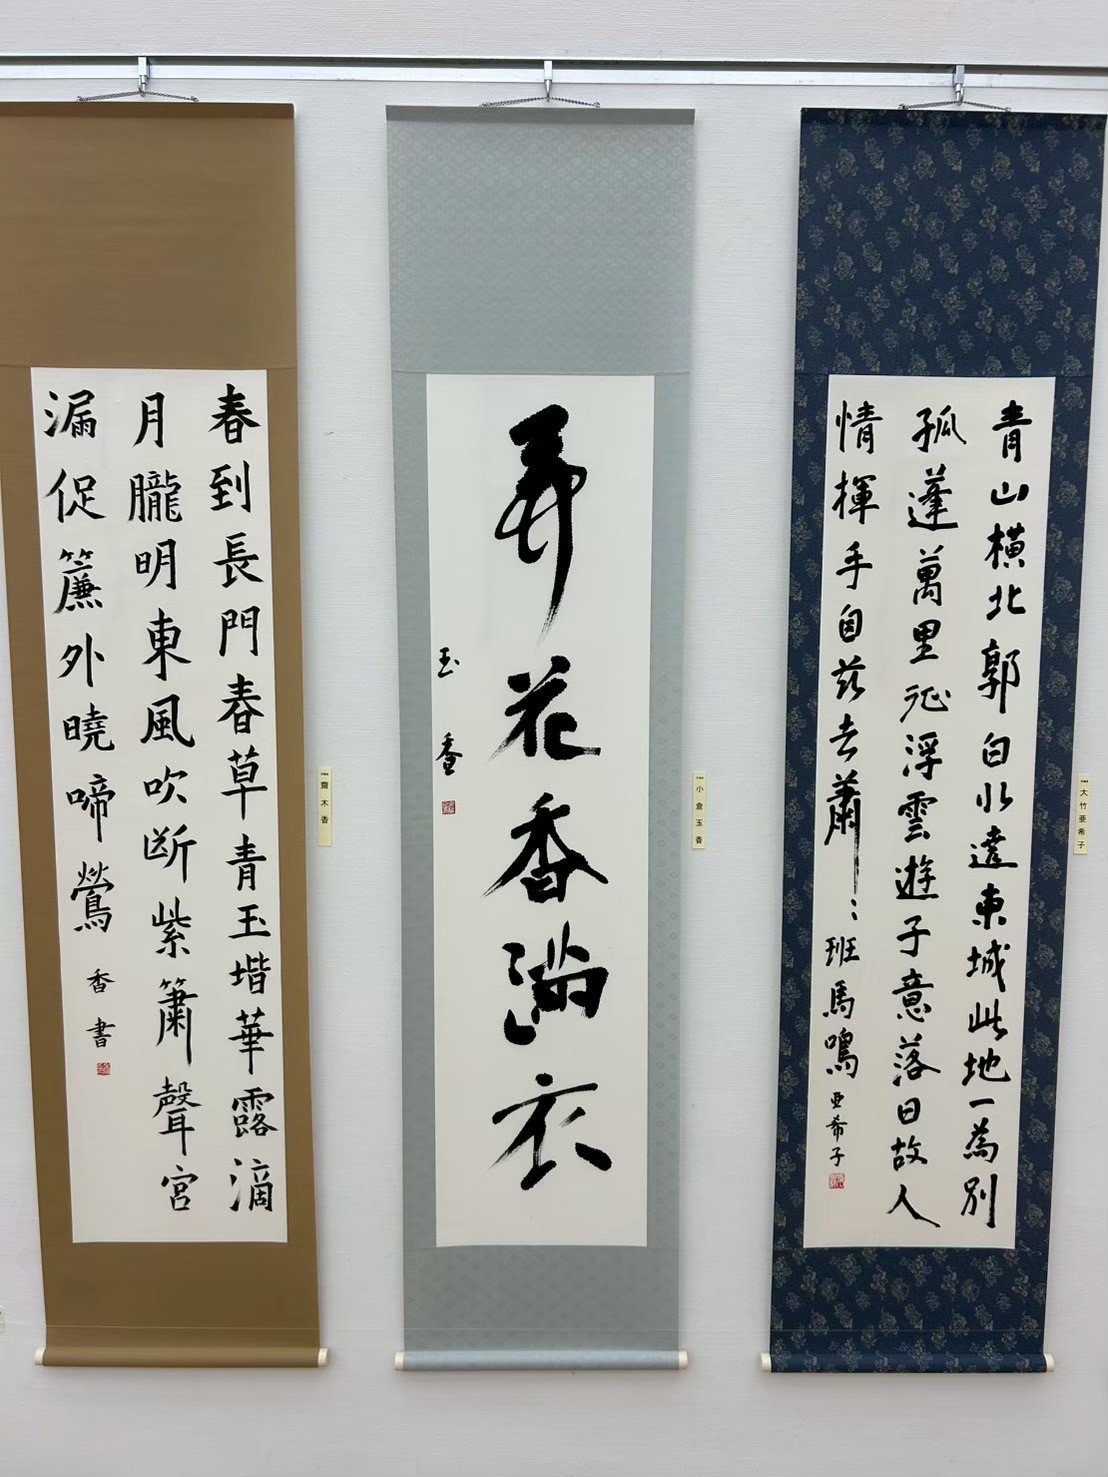 青山横北郭白水遶東城此地一為別
孤蓬萬里征浮雲遊子意落日故人
情揮手自茲去蕭〻班馬鳴
亜希子
大竹亜希子
弄花香満衣
玉香
小倉玉香
春到長門春草青玉堦華露滴
月朧明東風吹断紫簫聲宮
漏促簾外曉啼鶯
香書
齋木香